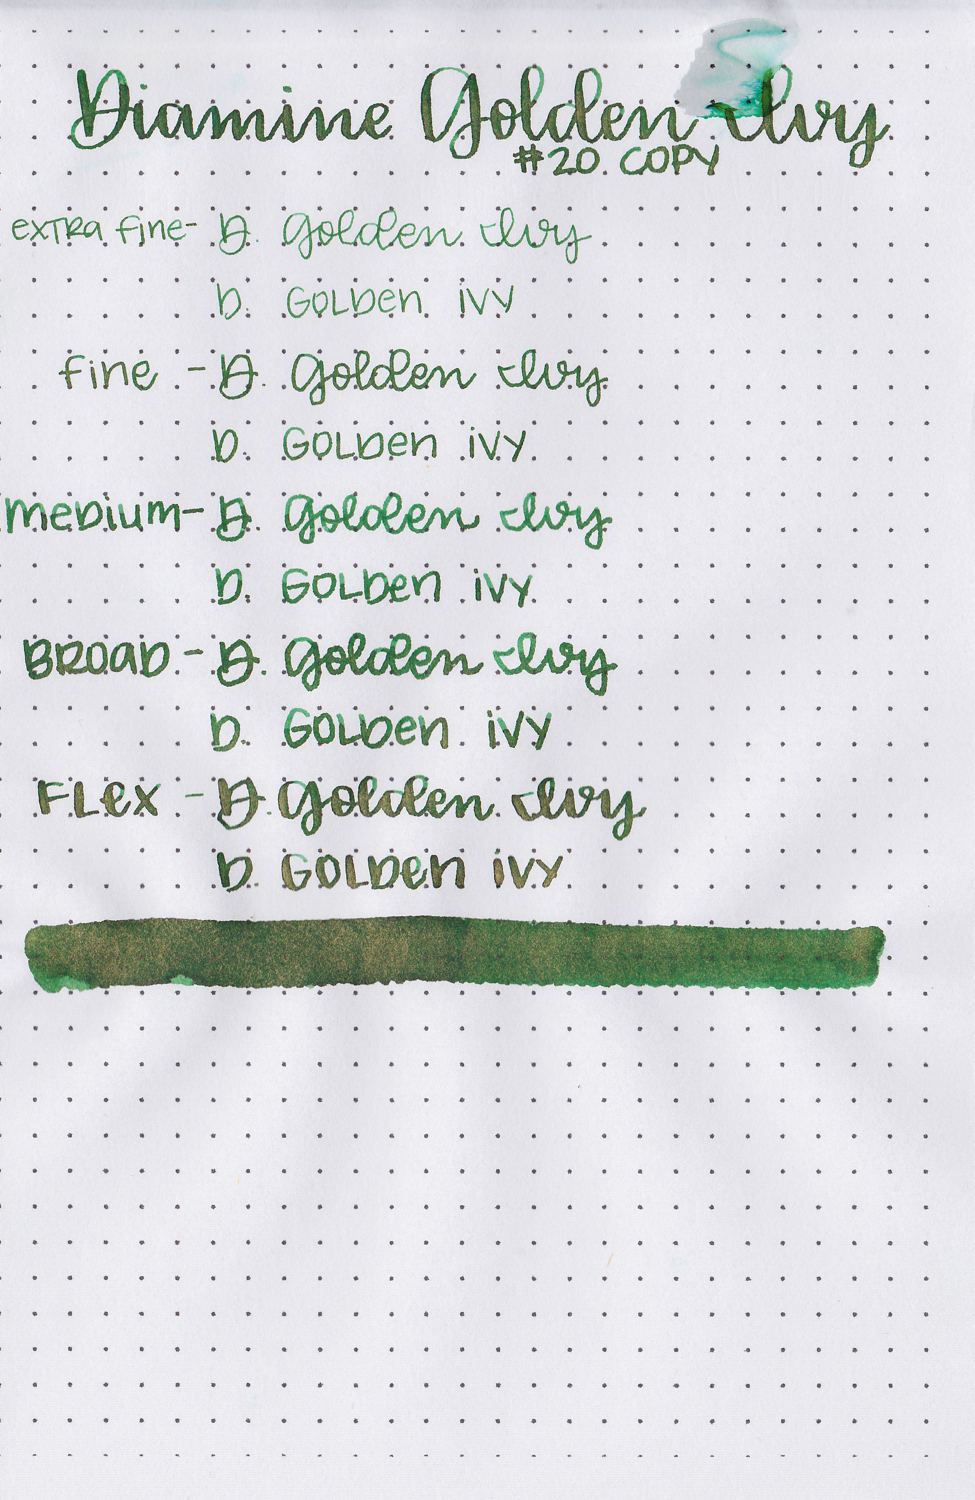 Diamine Golden Ivy
#20 COPY
extra fine - D. Golden Ivy
D. Golden ivy
fine - D. Golden Ivy
D. Golden ivy
Medium - D. Golden Ivy
D. Golden ivy
Broad - D. Golden Ivy
D. Golden ivy
Flex - D. Golden Ivy
D Golden ivy